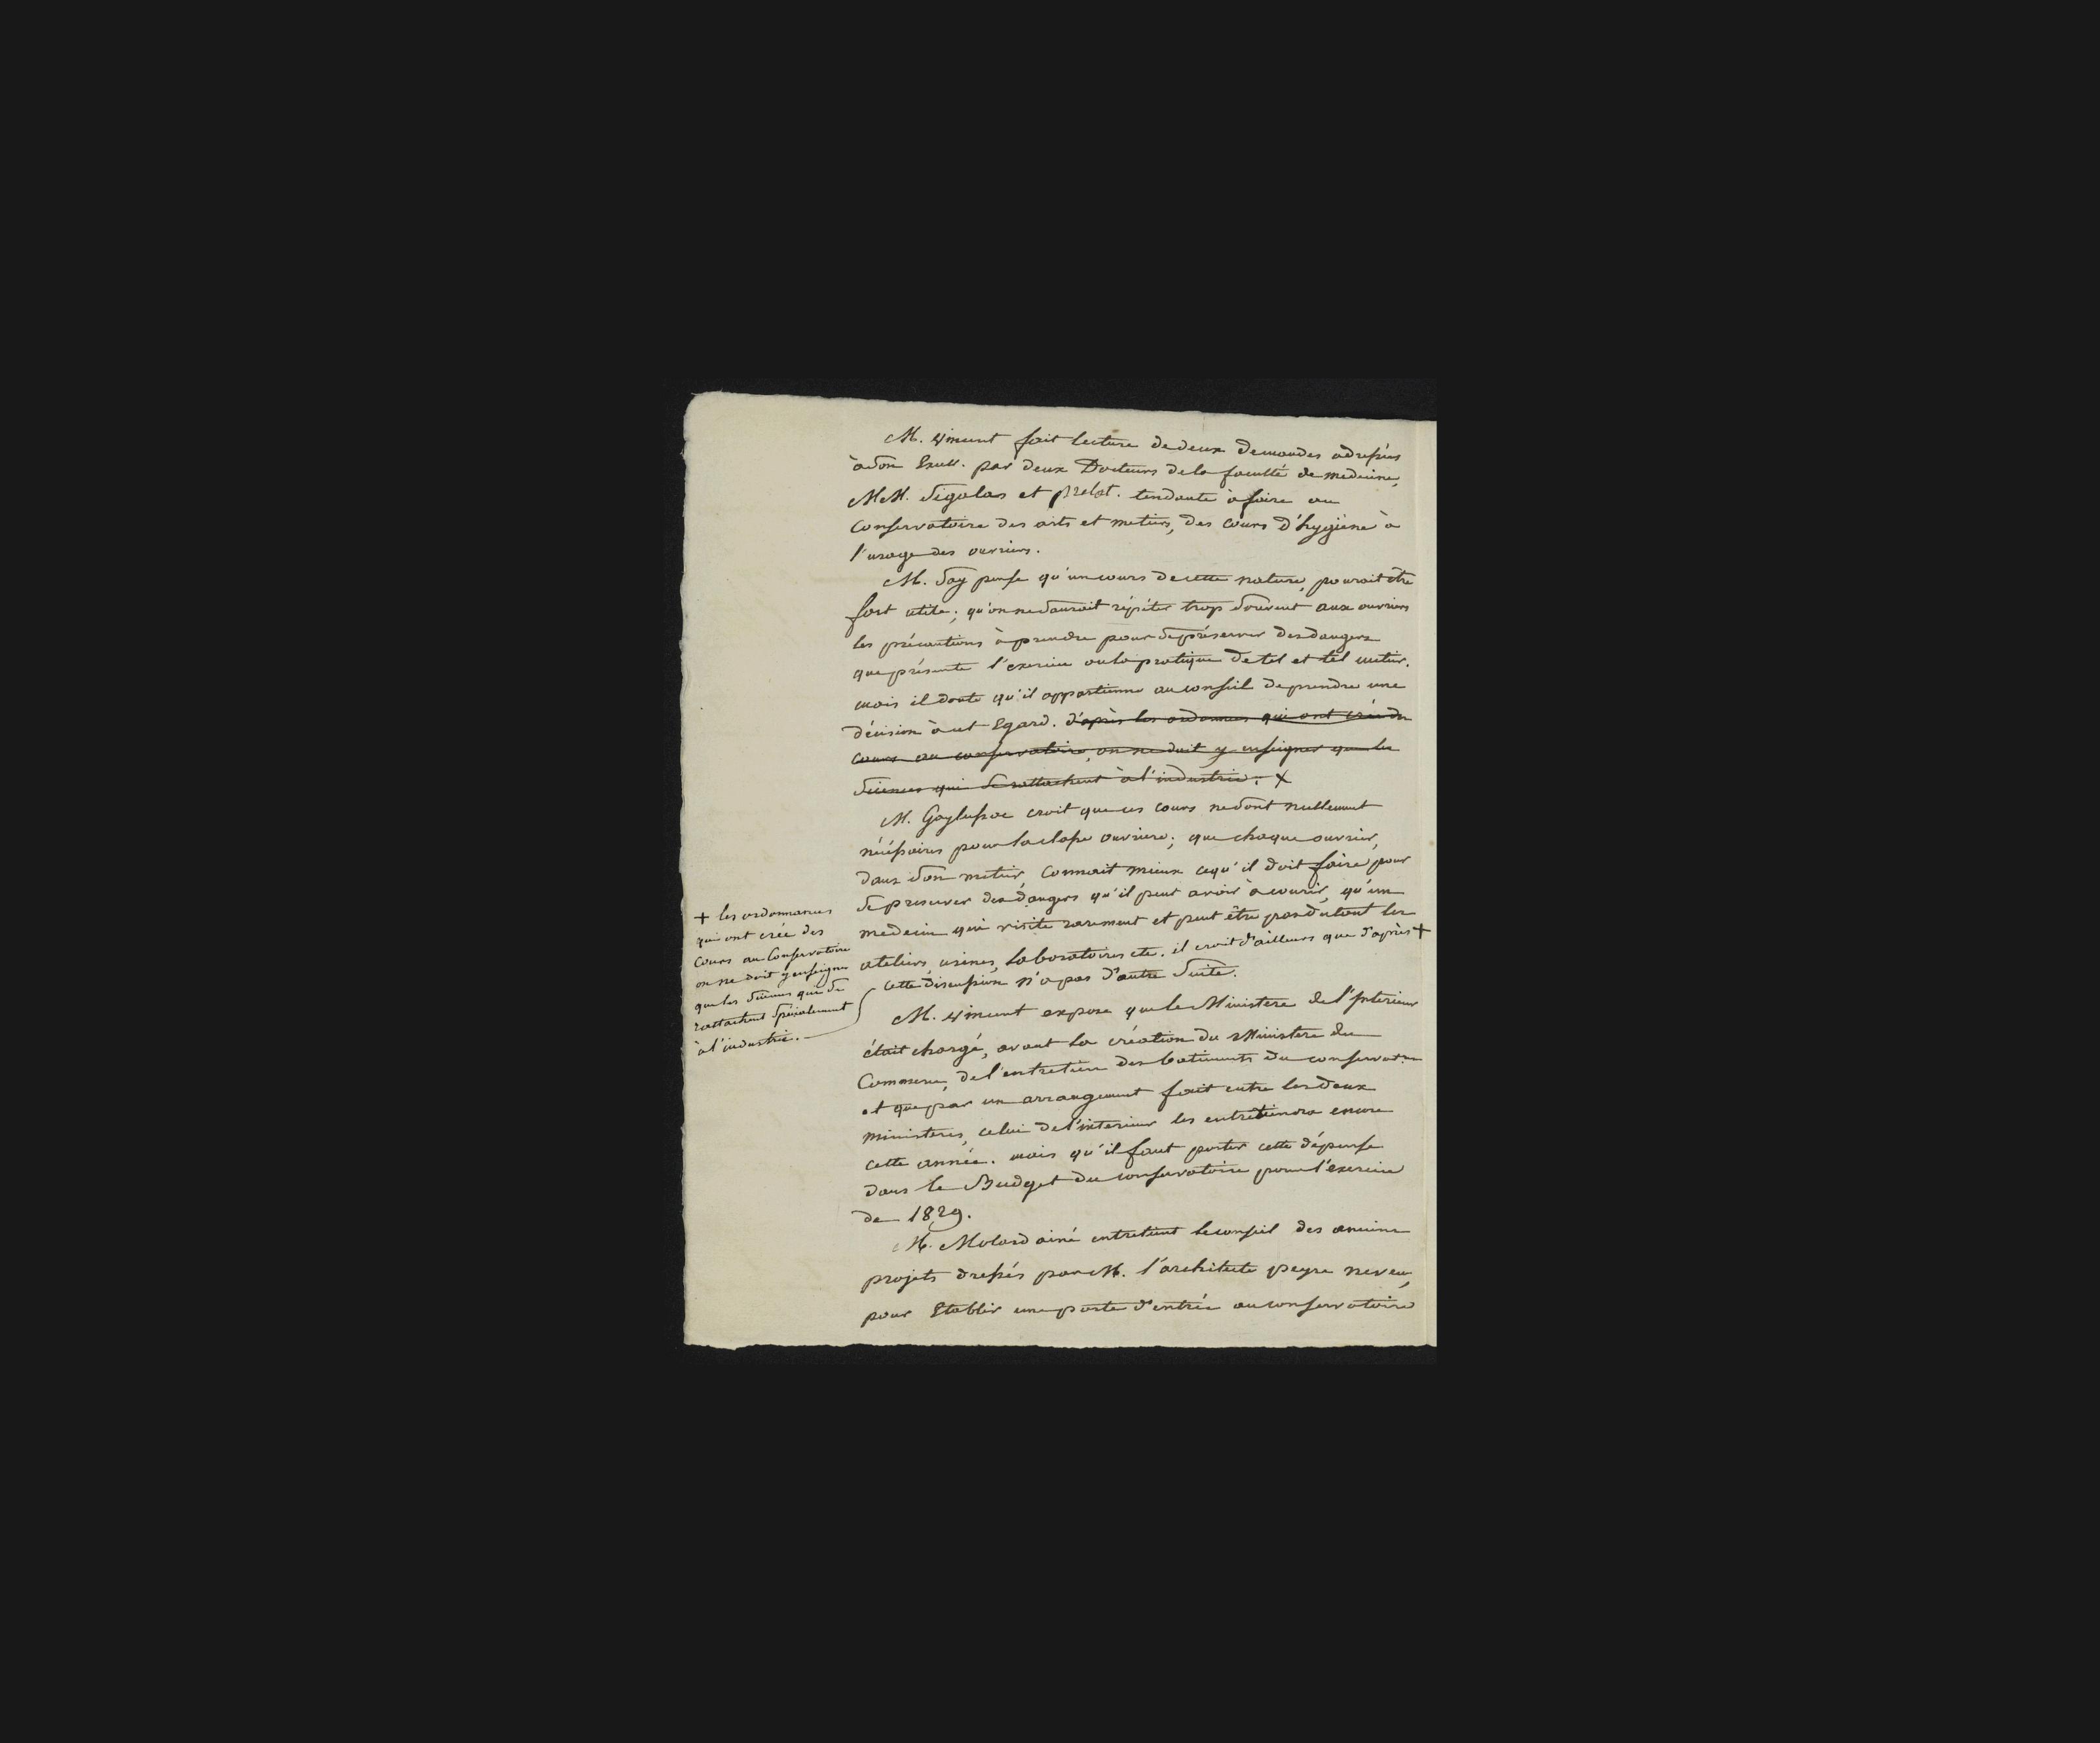 M. Vincent fait lecture de deux demandes adressées
à Son Excell. par deux Docteurs de la faculté de medecine,
MM. Segalas et prelat. tendante à faire au
Conservatoire des arts et metiers, des cours d'hygiène à
l'usage des ouvriers.
M. Say pense qu'un cours de cette nature, pourait être
fort utile; qu'on ne saurait répéter trop souvent aux ouvriers
les précautions à prendre pour se préserver des dangers
que présente l'exercice ou la pratique de tel et tel metier.
mais il doute qu'il appartienne au conseil de prendre une
décision à cet Egard. d'après les ordonnances qui ont crée des
cours au conservatoire, on ne doit y enseigner que les
Sciences qui se rattachent à l'industrie. X
M. Gaylussac croit que ces cours ne sont nullement
nécéssaires pour la classe ouvriere; que chaque ouvrier,
dans son metier, Connait mieux ce qu'il doit faire pour
se preserver des dangers qu'il peut avoir à courir, qu'un
medecin qui visite rarement et peut être pas du tout les
ateliers, usines, laboratoires etc. il croit d'ailleurs que d'après +
+ les ordonnances
qui ont crée des
Cours au Conservatoire
on ne doit y enseigner
que les Sciences qui se
rattachent spécialement
à l'industrie.
Cette discussion n'a pas d'autre Suite.
M. Vincent expose que le Ministere de l'Interieur
était chargé, avant la création du Ministere du
Commerce, de l'entretien des batiments du conservatoire
et que par un arrangement fait entre les deux
ministeres, celui de l'interieur les entretiendra encore
cette année. mais qu'il faut porter cette dépense
dans le Budget du conservatoire pour l'exercice
de 1829.
M. Molard ainé entretient le conseil des anciens
projets dressés par M. l'architecte peyre neveu,
pour Etablir une porte d'entrée au conservatoire